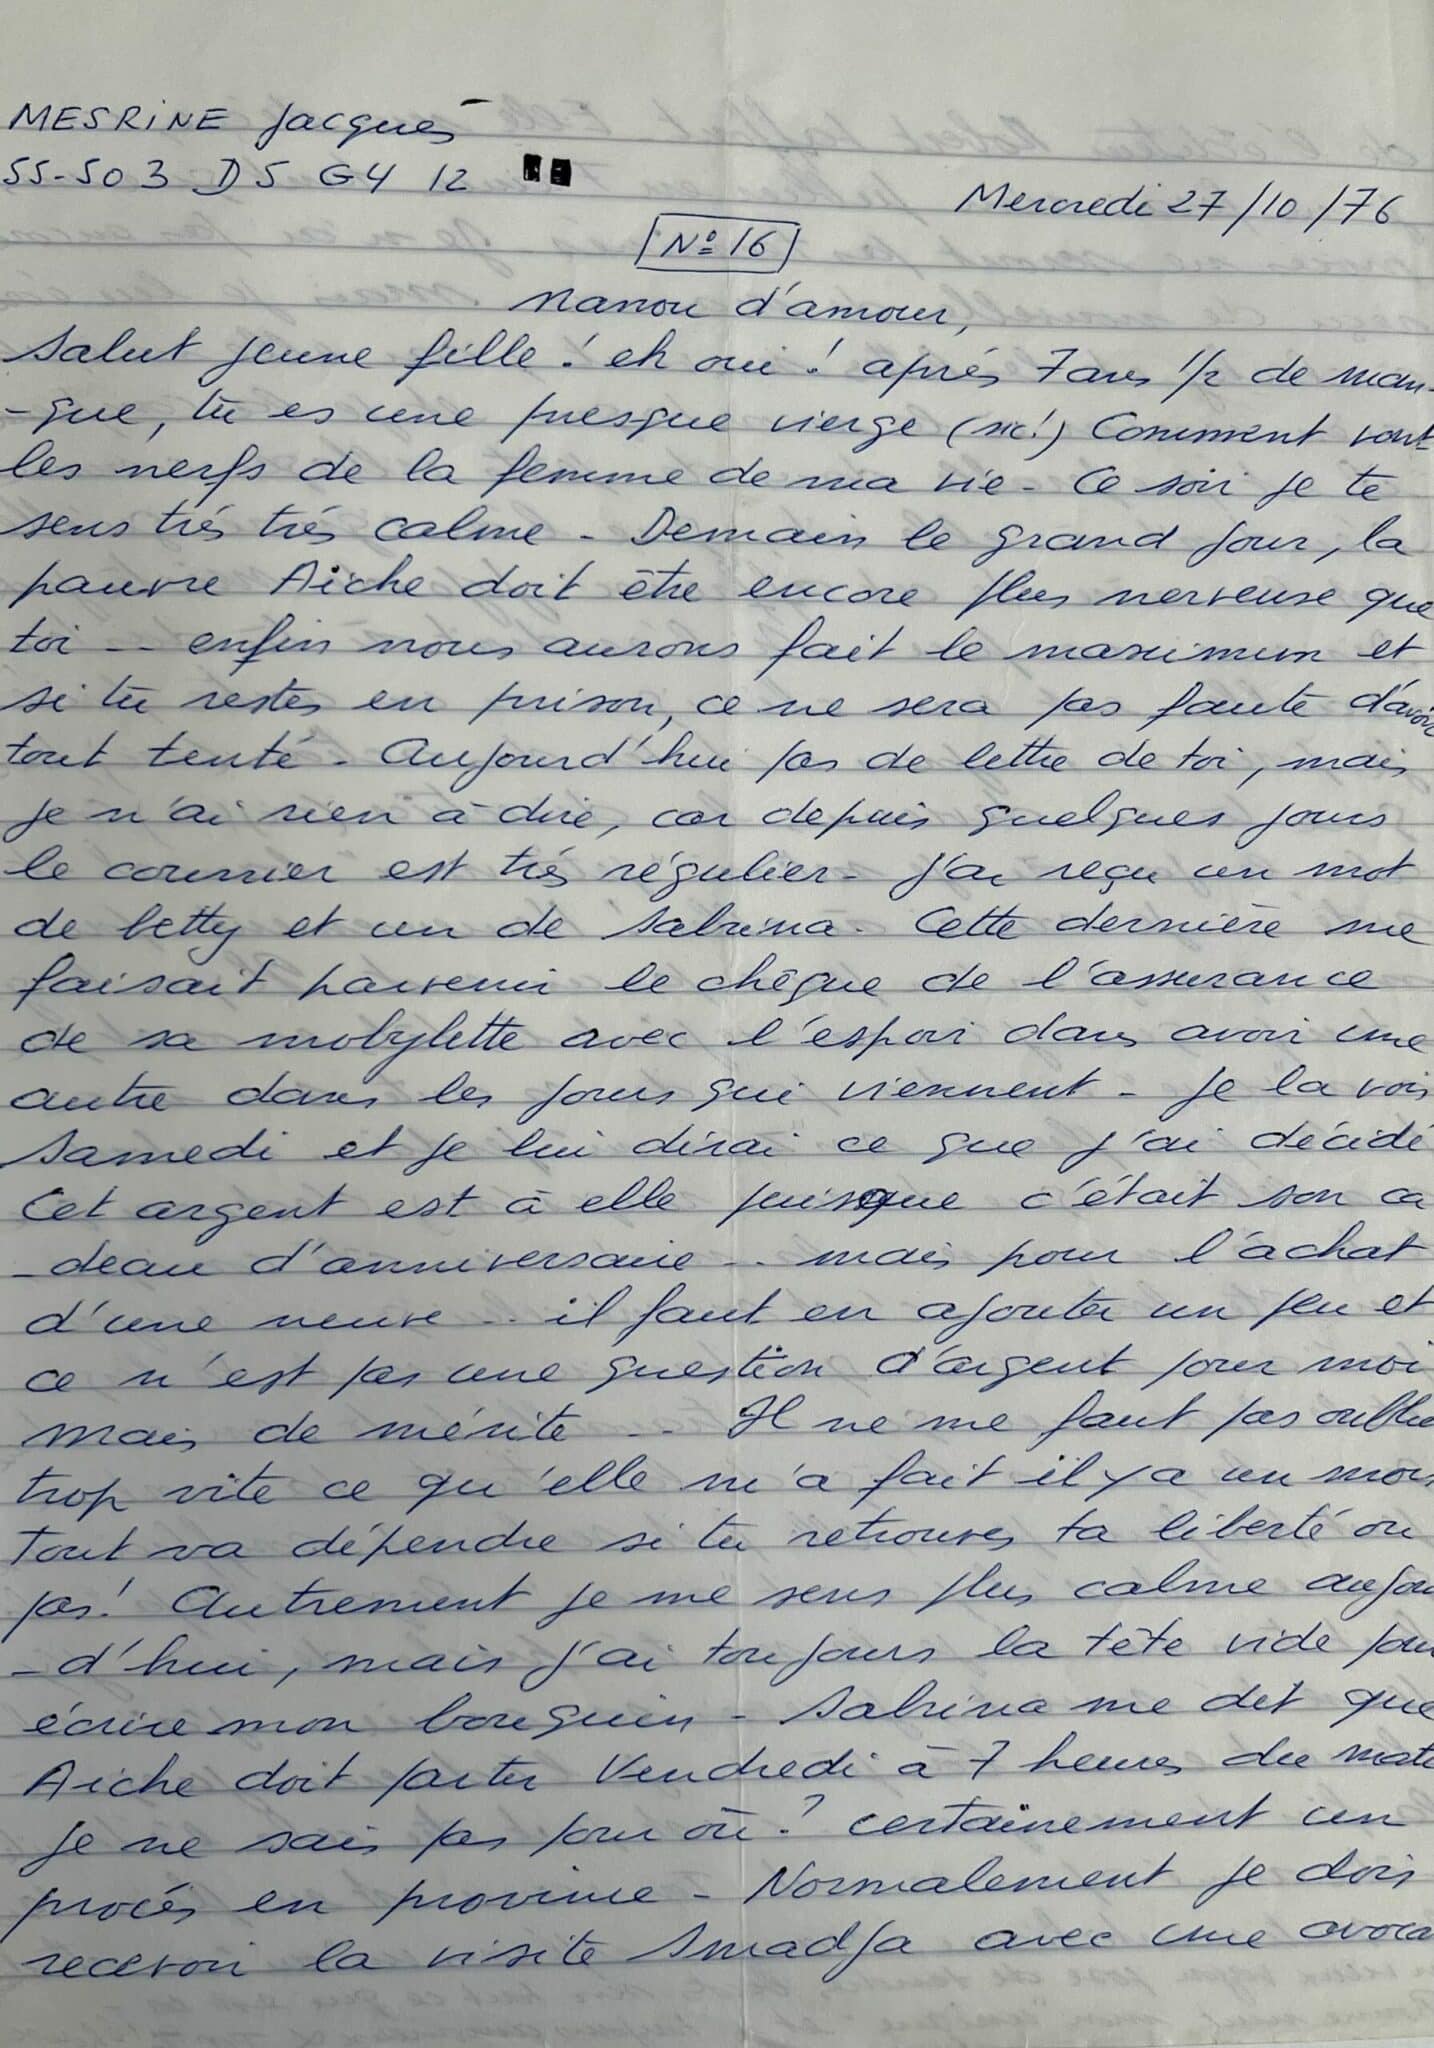 MESRINE Jacques
55-503 D5 G4 12
Mercredi 27/10/76
N° 16
Nanou d'amour,
Salut jeune fille! eh oui! aprés 7 ans 1/2 de man-
-que, tu es une presque vierge (sic!) Comment vont
les nerfs de la femme de ma vie - Ce soir je te
sens trés trés calme - Demain le grand jour, la
pauvre Aiche doit être encore plus nerveuse que
toi -- enfin nous aurons fait le maximum et
si tu restes en prison, ce ne sera pas faute d'avoir
tout tenté - Aujourd'hui pas de lettre de toi, mais
je n'ai rien à dire, car depuis quelques jours
le courrier est trés régulier - J'ai reçu un mot
de betty et un de Sabrina. Cette dernière me
faisait parvenir le chêque de l'assurance
de sa mobylette avec l'espoir dans avoir une
autre dans les jours qui viennent - Je la vois
Samedi et je lui dirai ce que j'ai décidé
Cet argent est à elle puisque c'était son ca
-deau d'anniversaire .. mais pour l'achat
d'une neuve .. il faut en ajouter un peu et
ce n'est pas une question d'argent pour moi
mais de mérite .. Il ne me faut pas oublier
trop vite ce qu'elle m'a fait il y a un mois
Tout va dépendre si tu retrouves ta liberté ou
pas! Autrement je me sens plus calme aujour
-d'hui, mais j'ai toujours la tête vide pour
écrire mon bouquin - Sabrina me dit que
Aiche doit partir Vendredi à 7 heures du matin
je ne sais pas pour où? certainement un
procés en province - Normalement je dois
recevoir la visite Smadja avec une avoca